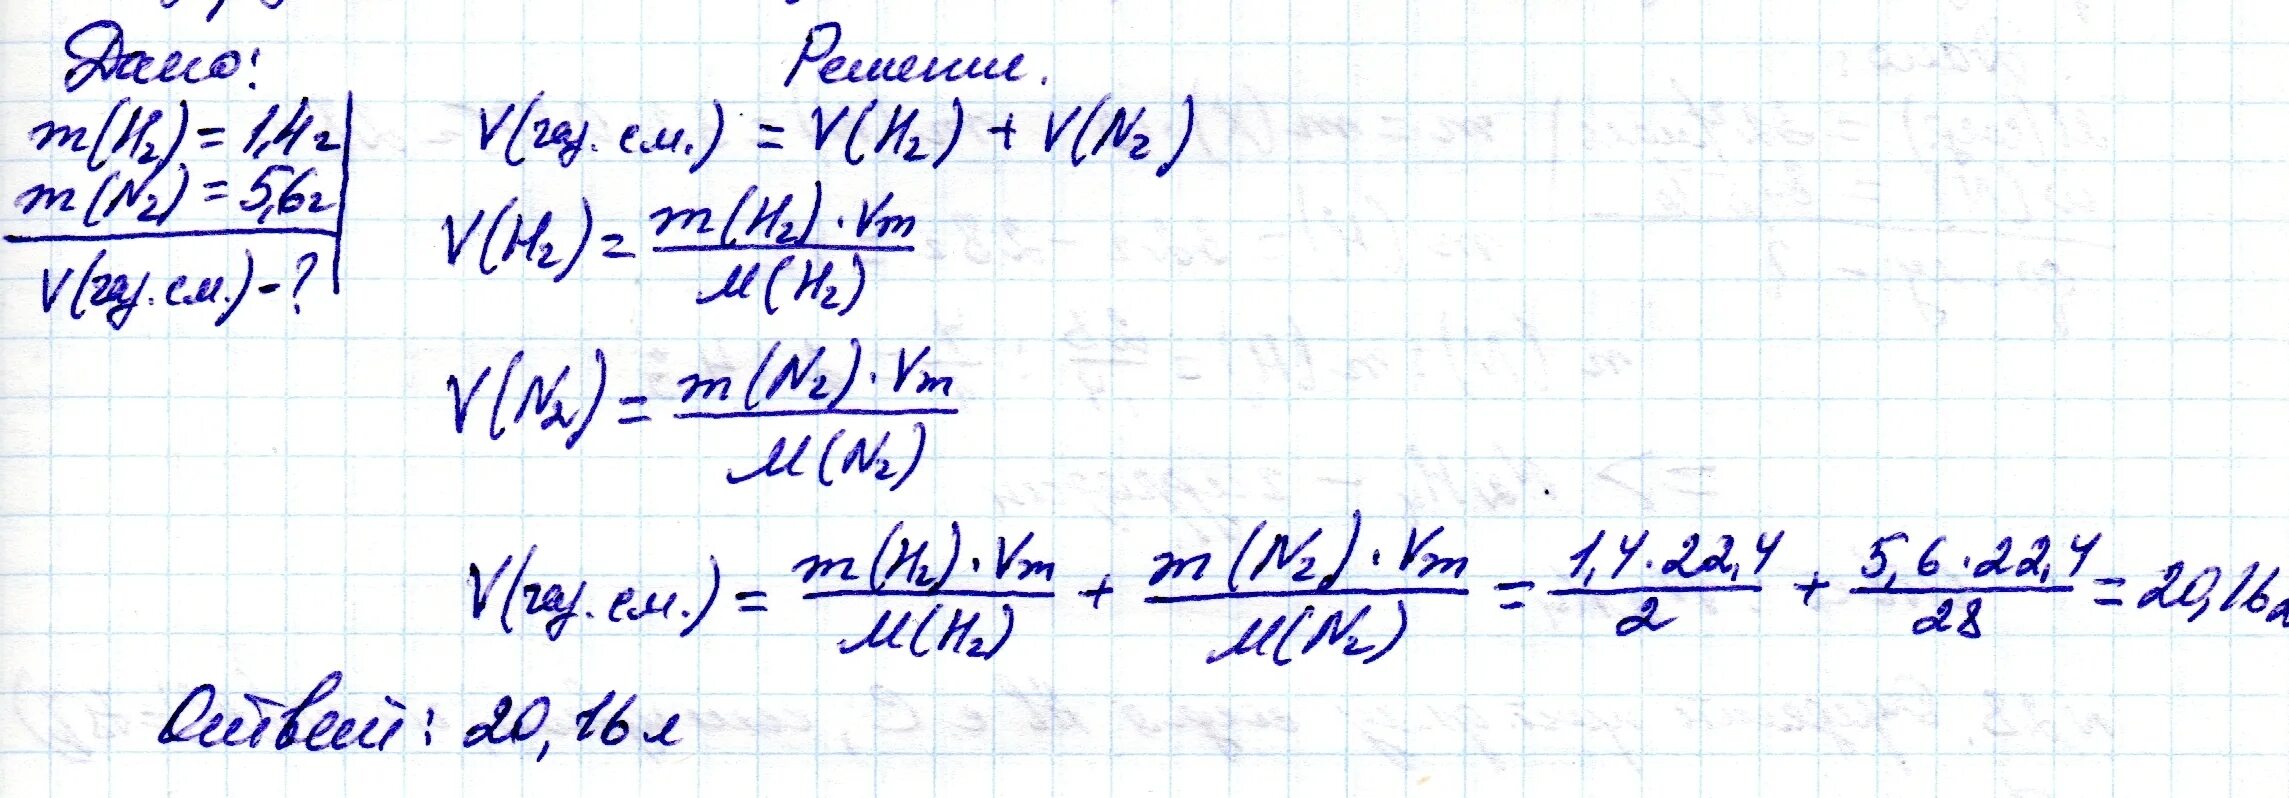 Дано:
m(H₂) = 1,4 г
m(N₂) = 5,6 г
V(газ. см.) - ?
Решение.
V(газ. см.) = V(H₂) + V(N₂)
V(H₂) = m(H₂) · Vm / M(H₂)
V(N₂) = m(N₂) · Vm / M(N₂)
V(газ. см.) = m(H₂) · Vm / M(H₂) + m(N₂) · Vm / M(N₂) = 1,4 · 22,4 / 2 + 5,6 · 22,4 / 28 = 20,16 л
Ответ: 20,16 л